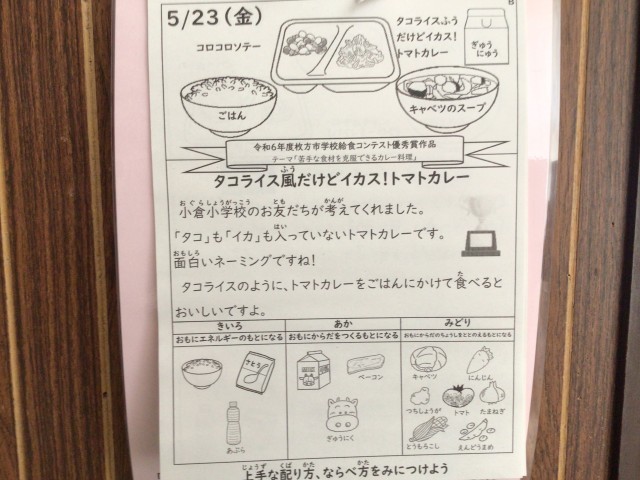 B
5/23(金)
コロコロソテー
タコライスふう
だけどイカス!
トマトカレー
ぎゅう
にゅう
ごはん
キャベツのスープ
令和6年度枚方市学校給食コンテスト優秀賞作品
テーマ「苦手な食材を克服できるカレー料理」
タコライス風だけどイカス!トマトカレー
小倉小学校のお友だちが考えてくれました。
「タコ」も「イカ」も入っていないトマトカレーです。
面白いネーミングですね!
タコライスのように、トマトカレーをごはんにかけて食べると
おいしいですよ。
きいろ
おもにエネルギーのもとになる
さとう
あぶら
あか
おもにからだをつくるもとになる
ベーコン
ぎゅうにく
みどり
おもにからだのちょうしをととのえるもとになる
キャベツ
にんじん
つちしょうが
トマト
たまねぎ
とうもろこし
えんどうまめ
上手な配り方、ならべ方をみにつけよう